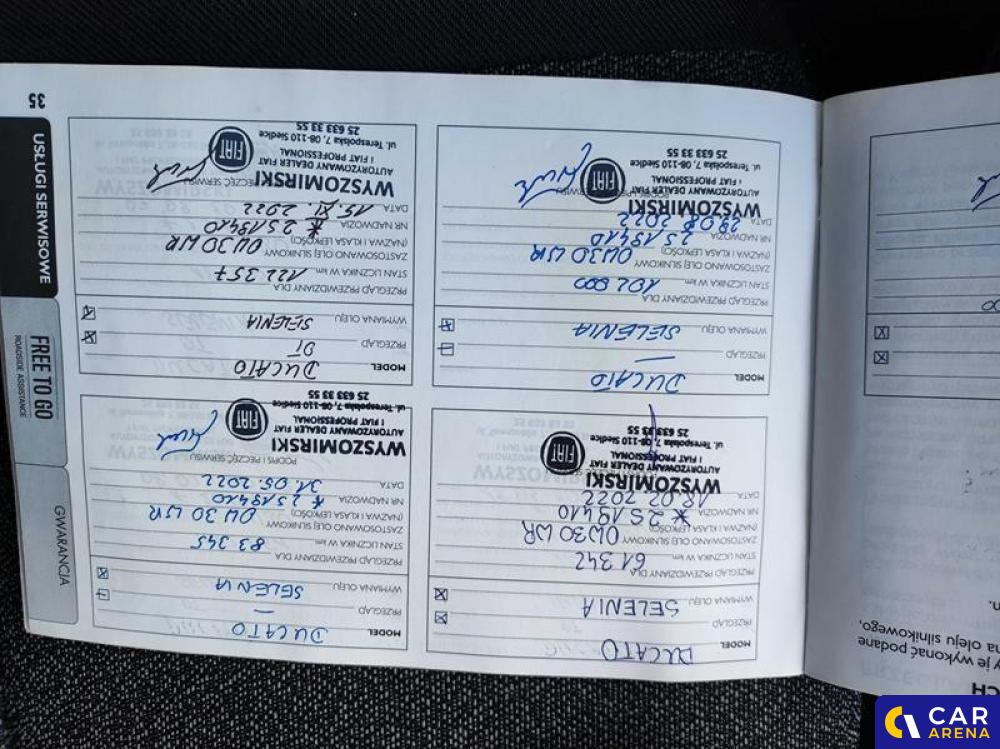 CH
y je wykonać podane
na oleju silnikowego.
MODEL DUCATO
PRZEGLĄD
WYMIANA OLEJU SELENIA
PRZEGLĄD PRZEWIDZIANY DLA
STAN LICZNIKA W km 61 342
ZASTOSOWANO OLEJ SILNIKOWY
(NAZWA I KLASA LEPKOŚCI) 0W30 WR
NR NADWOZIA * 2S19410
DATA 18.02.2022
WYSZOMIRSKI
AUTORYZOWANY DEALER FIAT
i FIAT PROFESSIONAL
ul. Terespolska 7, 08-110 Siedlce
25 633 33 55
FIAT
MODEL DUCATO
PRZEGLĄD —
WYMIANA OLEJU SELENIA
PRZEGLĄD PRZEWIDZIANY DLA
STAN LICZNIKA W km 83 345
ZASTOSOWANO OLEJ SILNIKOWY
(NAZWA I KLASA LEPKOŚCI) 0W30 WR
NR NADWOZIA * 2S19410
DATA 31.05.2022
PODPIS I PIECZĘĆ SERWISU
WYSZOMIRSKI
AUTORYZOWANY DEALER FIAT
i FIAT PROFESSIONAL
ul. Terespolska 7, 08-110 Siedlce
25 633 33 55
FIAT
MODEL DUCATO
PRZEGLĄD —
WYMIANA OLEJU SELENIA
PRZEGLĄD PRZEWIDZIANY DLA
STAN LICZNIKA W km 102 000
ZASTOSOWANO OLEJ SILNIKOWY
(NAZWA I KLASA LEPKOŚCI) 0W30 WR
NR NADWOZIA 2S19410
DATA 29.08.2022
WYSZOMIRSKI
AUTORYZOWANY DEALER FIAT
i FIAT PROFESSIONAL
ul. Terespolska 7, 08-110 Siedlce
25 633 33 55
FIAT
MODEL DUCATO
PRZEGLĄD DT
WYMIANA OLEJU SELENIA
PRZEGLĄD PRZEWIDZIANY DLA
STAN LICZNIKA W km 122 357
ZASTOSOWANO OLEJ SILNIKOWY
(NAZWA I KLASA LEPKOŚCI) 0W30 WR
NR NADWOZIA * 2S19410
DATA 15.XI.2022
PIECZĘĆ SERWISU
WYSZOMIRSKI
AUTORYZOWANY DEALER FIAT
i FIAT PROFESSIONAL
ul. Terespolska 7, 08-110 Siedlce
25 633 33 55
FIAT
GWARANCJA
FREE TO GO
ROADSIDE ASSISTANCE
USŁUGI SERWISOWE
35
CAR
ARENA